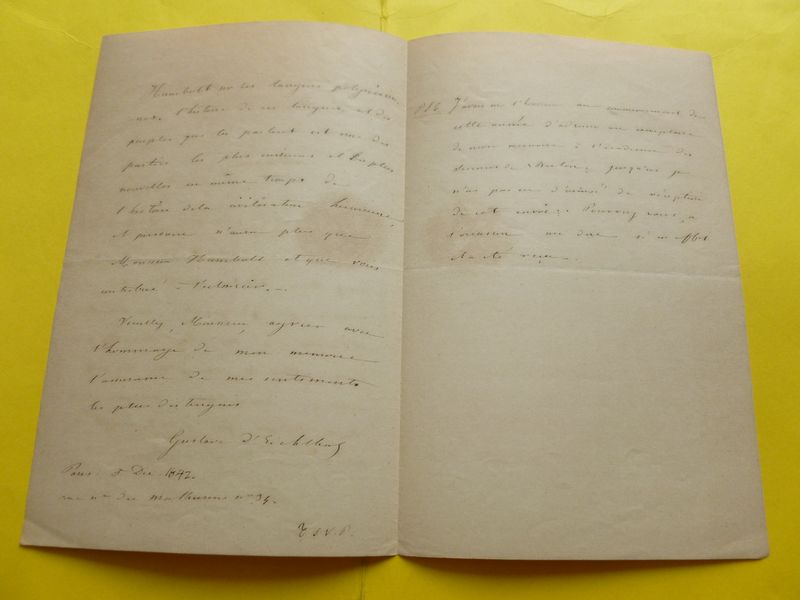 Humboldt sur les langues polynésien-
nes. L'histoire de ces langues et des
peuples qui les parlent est une des
parties les plus curieuses et les plus
nouvelles en même temps de
l'histoire de la civilisation humaine,
et personne n'aura plus que
Monsieur Humboldt et que vous
contribué à l'éclaircir.
Veuillez, Monsieur, agréer avec
l'hommage de mon mémoire
l'assurance de mes sentiments
les plus distingués
Gustave d'Eichthal
Paris Dec. 1842.
rue des Mathurins n°
T.S.V.P.
P.S. J'avais eu l'honneur au commencement de
cette année d'adresser un exemplaire
de mon mémoire à l'académie des
sciences de Berlin; jusqu'ici je
n'ai pas eu d'avis de réception
de cet envoi. Pourrez vous à
l'occasion me dire si en effet
il a été reçu.